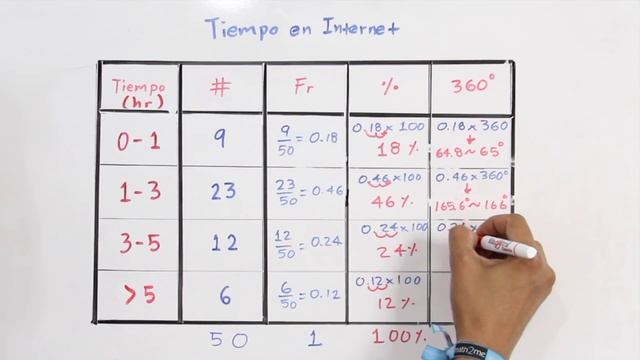 Tiempo en Internet
Tiempo (hr) # Fr % 360°
0-1 9 9/50 = 0.18 0.18 x 100 0.18 x 360
18% 64.8~65°
1-3 23 23/50 = 0.46 0.46 x 100 0.46 x 360°
46% 165.6°~166°
3-5 12 12/50 = 0.24 0.24 x 100
24%
>5 6 6/50 = 0.12 0.12 x 100
12%
50 1 100%
math2me